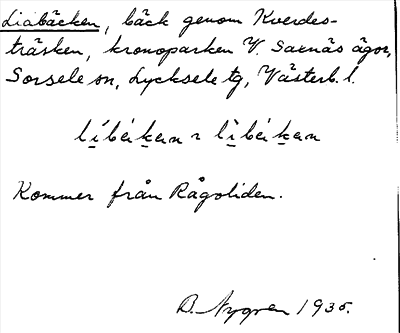 Liabäcken, bäck genom Kverdes-
träsken, kronoparken V. Saxnäs ägor,
Sorsele sn, Lycksele tg, Västerb. l.
Kommer från Rågoliden.
D. Nygren 1935.